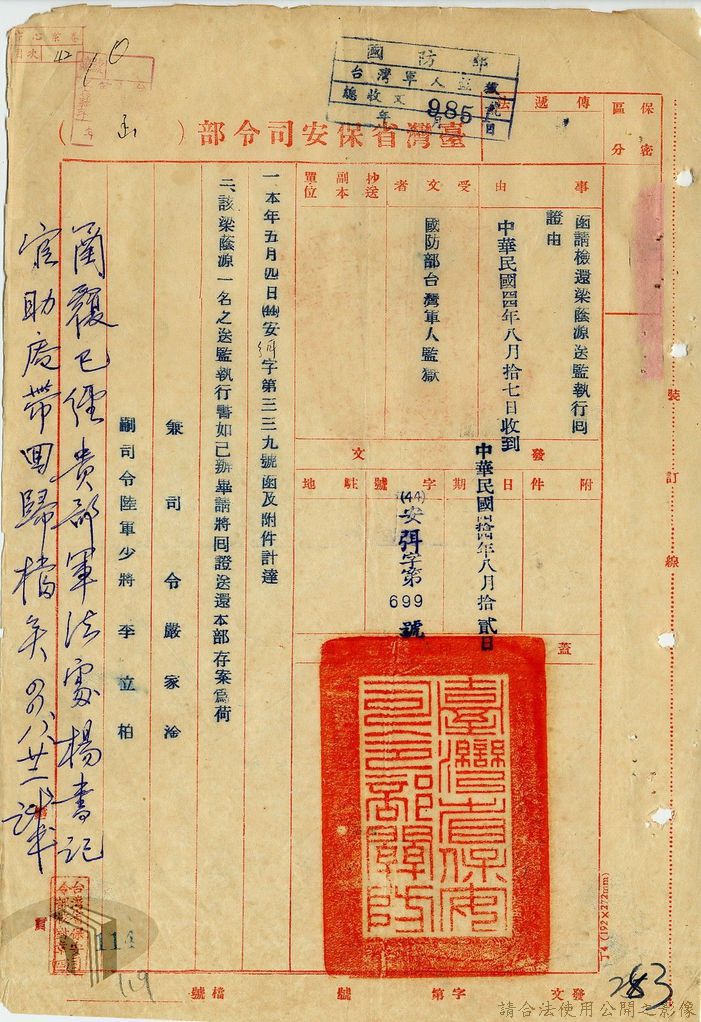 國防部
台灣軍人監獄
總收文 985
年 月 日
臺灣省保安司令部（函）
保密
區分
傳遞法
事由
函請檢還梁蔭源送監執行回
證由
受文者
國防部台灣軍人監獄
抄送
副本
單位
中華民國四四年八月拾七日收到
發文
附件
日期
中華民國四拾四年八月拾貳日
字號
(44)安弭字第699號
駐地
蓋
臺灣省保安司令部關防
一本年五月四日(44)安弭字第三三九號函及附件計達
二、該梁蔭源一名之送監執行書如已辦畢請將回證送還本部存案為荷
兼司令嚴家淦
副司令陸軍少將李立柏
函覆已經貴部軍法處楊書記
官助處帶回歸檔矣
裝訂線
丁4(192×272mm)
114
119
283
發文 字第 號
檔號
請合法使用公開之影像